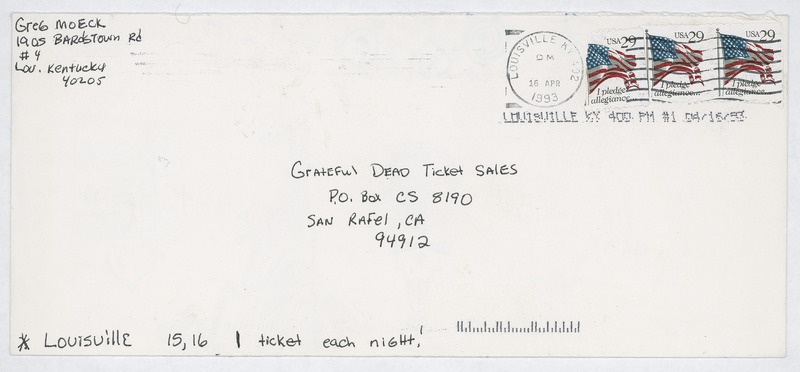 Greg Moeck
1905 Bardstown Rd
#4
Lou. Kentucky
40205
LOUISVILLE KY 402
PM
16 APR
1993
USA 29
I pledge
allegiance...
USA 29
I pledge
allegiance...
USA 29
I pledge
allegiance...
LOUISVILLE KY 400 PM #1 04/16/93
Grateful Dead Ticket Sales
P.O. Box CS 8190
San Rafel, CA
94912
* Louisville 15,16 1 ticket each night!